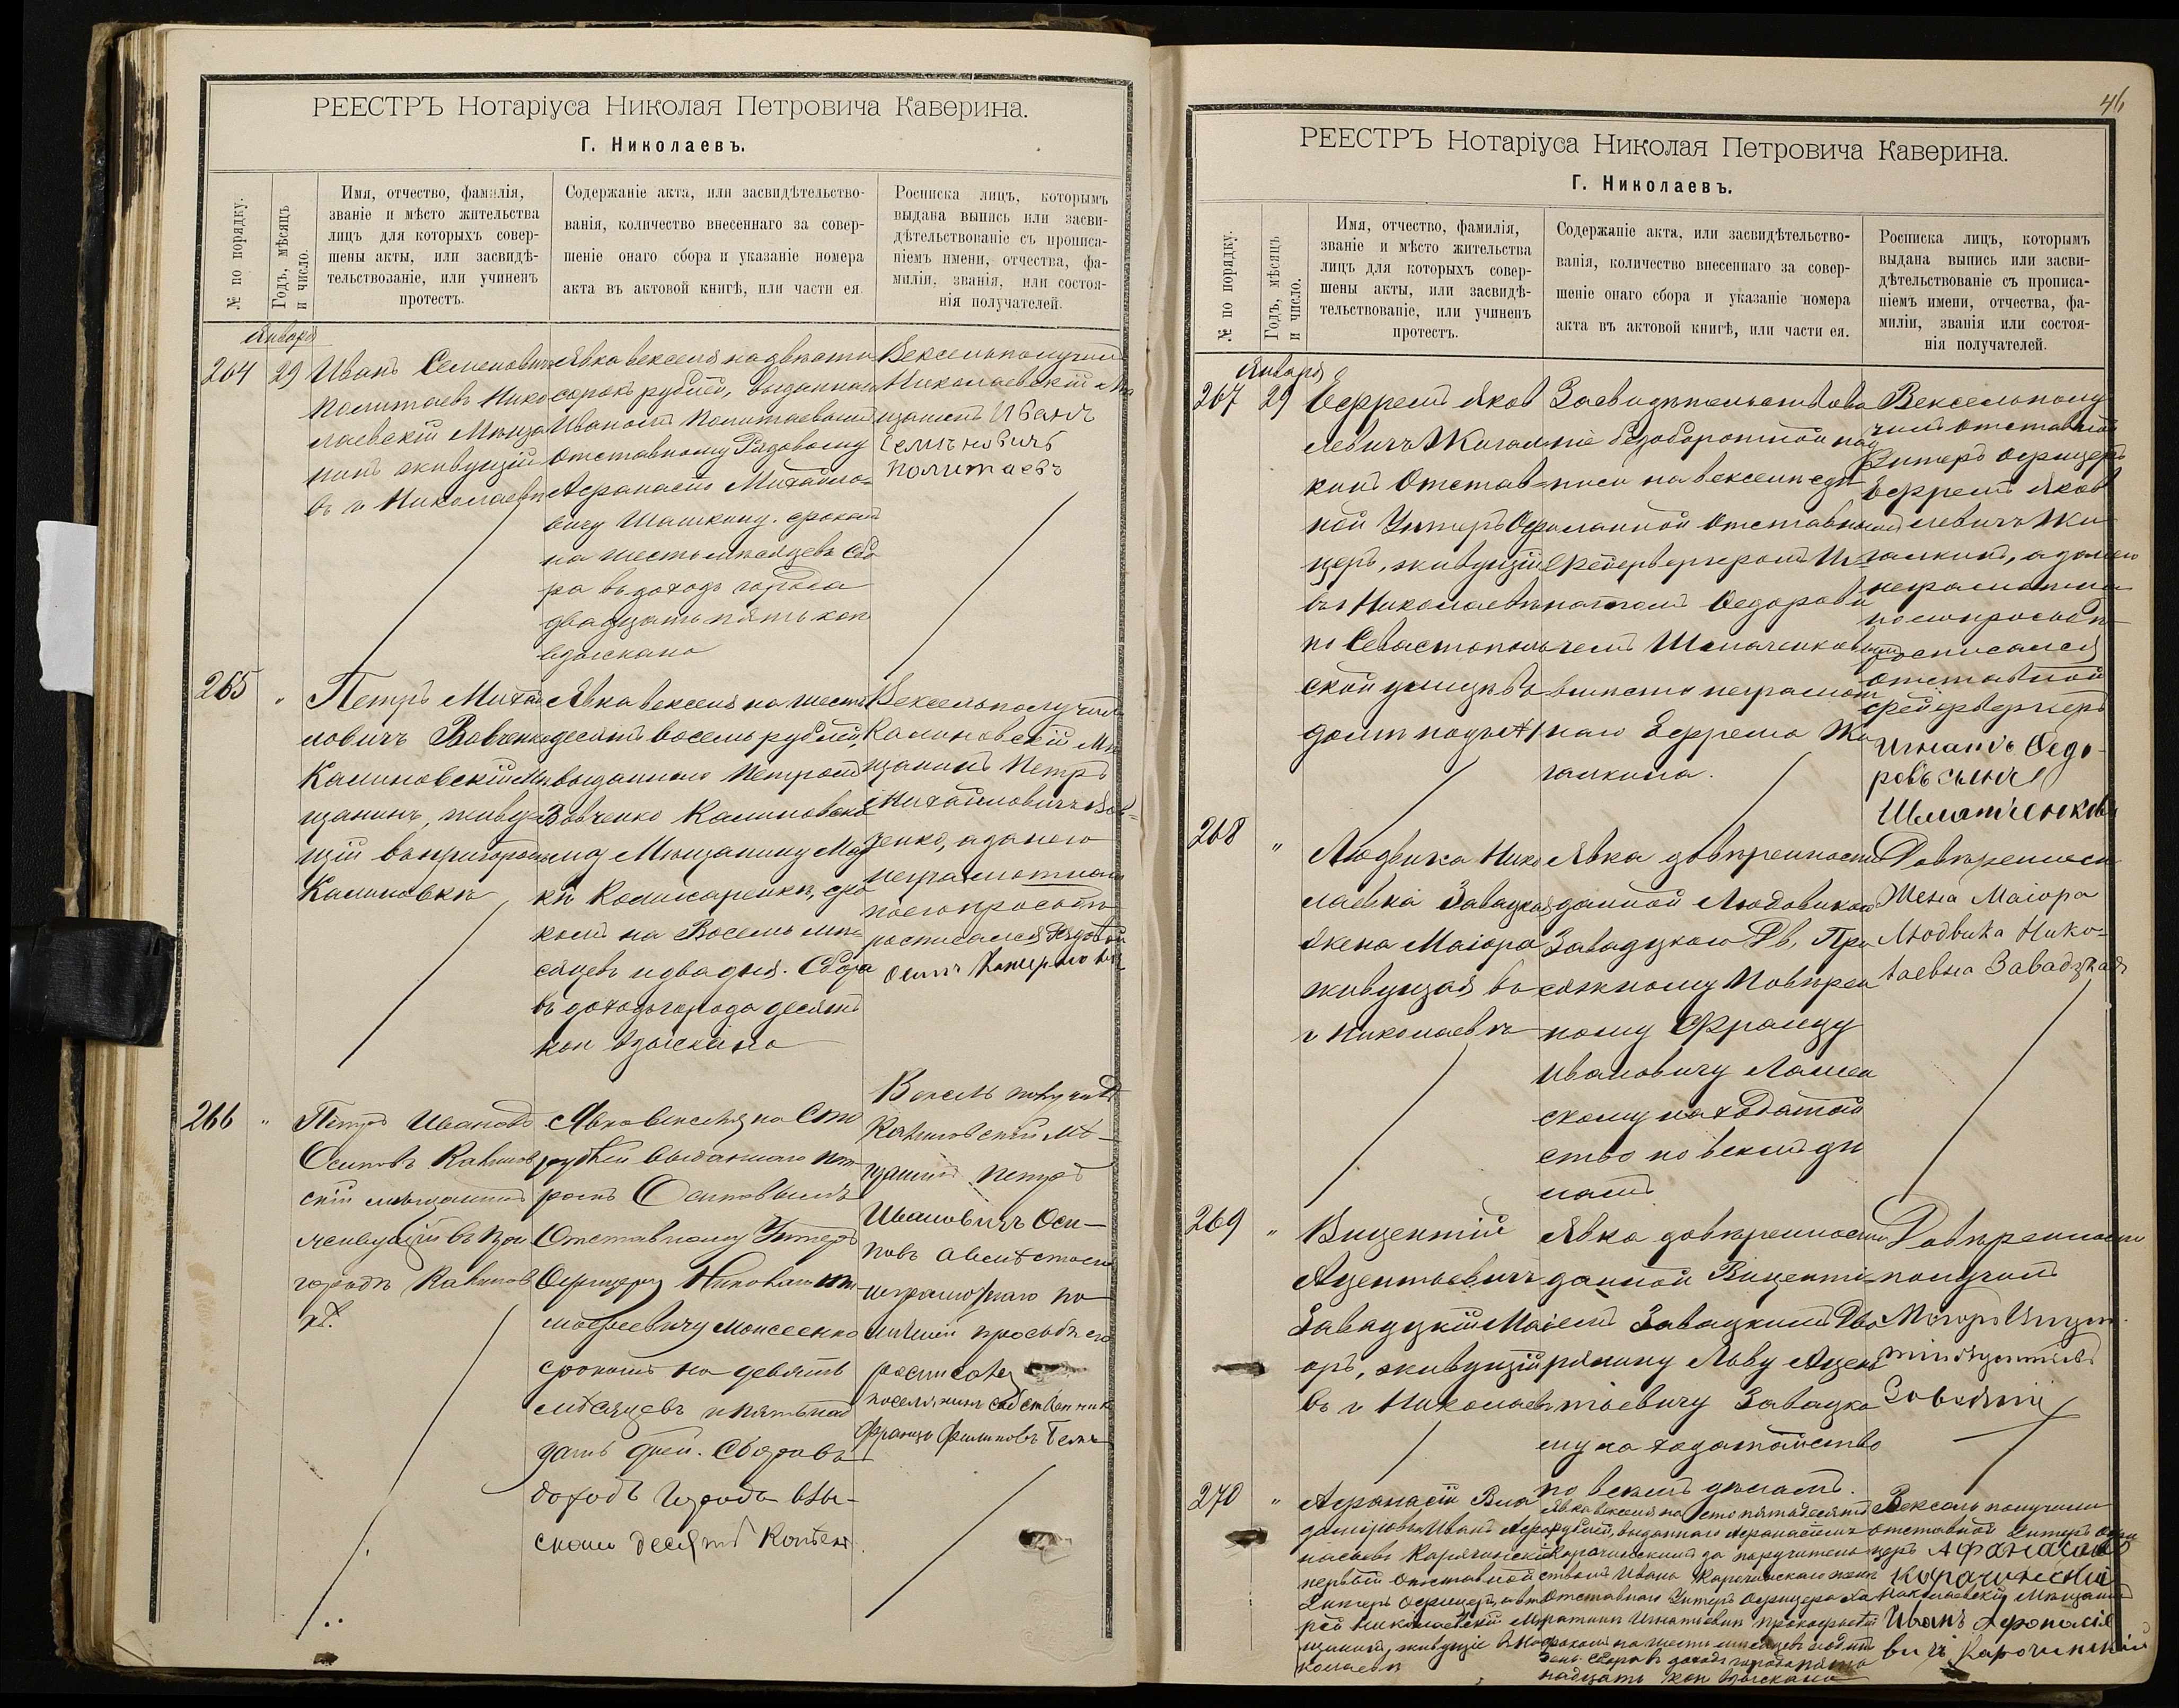 РЕЕСТРЪ Нотаріуса Николая Петровича Каверина.
Г. Николаевъ.
№ по порядку.
Годъ, мѣсяцъ
и число.
Имя, отчество, фамилія,
званіе и мѣсто жительства
лицъ для которыхъ совер-
шены акты, или засвидѣ-
тельствованіе, или учиненъ
протестъ.
Содержаніе акта, или засвидѣтельство-
ванія, количество внесеннаго за совер-
шеніе онаго сбора и указаніе номера
акта въ актовой книгѣ, или части ея.
Росписка лицъ, которымъ
выдана выпись или засви-
дѣтельствованіе съ прописа-
ніемъ имени, отчества, фа-
миліи, званія, или состоя-
нія получателей.
Января
264 29
Иванъ Семеновичъ
Политаевъ Нико
лаевскій Мѣща
нинъ живущій
въ г Николаевѣ
Явка векселя на двѣсти
сорокъ рублей, выданнаго
Иваномъ Политаевымъ
Отставному Рядовому
Афанасію Михайло-
вичу Шашкину. срокомъ
на шесть мѣсяцевъ Сбо
ра въ доходъ города
двадцать пять коп
взыскано
Вексель получилъ
Николаевскій Мѣ
щанинъ Иванъ
Семѣновичъ
Политаевъ
265 "
Петръ Михай
ловичъ Вовченко
Калиновскій Мѣ
щанинъ, живу
щій въ пригородѣ
Калиновкѣ
Явка векселя на шесть
десятъ восемь рублей,
выданнаго Петромъ
Вовченко Калиновско
му Мѣщанину Мар
кѣ Комисаренкѣ, сро
комъ на Восемь мѣ
сяцевъ и два дня. Сбора
въ доходъ города десять
коп взыскано
Вексель получилъ
Калиновскій Мѣ
щанинъ Петръ
Михайловичъ Вов-
ченко, а за него
неграмотнаго
по его просьбѣ
росписался Рядовой
Осипъ
266 "
Петръ Ивановъ
Осиповъ Калинов
скій мѣщанинъ
живущій въ при
городѣ Калинов
кѣ.
Явка векселя на Сто
рублей выданнаго Пет
ромъ Осиповымъ
Отставному Унтеръ
Офицеру Николаю Ти
мофеевичу Моисеенко
срокомъ на девять
мѣсяцевъ и пятьнад
цать дней. Сбора въ
доходъ города взы-
скано десять копѣекъ.
Вексель получилъ
Калиновскій Мѣ-
щанинъ Петръ
Ивановичъ Оси-
повъ а вмѣсто его
неграмотнаго по
личной просьбѣ его
росписался
поселянинъ собственникъ
Францъ Филиповъ
46
РЕЕСТРЪ Нотаріуса Николая Петровича Каверина.
Г. Николаевъ.
№ по порядку.
Годъ, мѣсяцъ
и число.
Имя, отчество, фамилія,
званіе и мѣсто жительства
лицъ для которыхъ совер-
шены акты, или засвидѣ-
тельствованіе, или учиненъ
протестъ.
Содержаніе акта, или засвидѣтельство-
ванія, количество внесеннаго за совер-
шеніе онаго сбора и указаніе номера
акта въ актовой книгѣ, или части ея.
Росписка лицъ, которымъ
выдана выпись или засви-
дѣтельствованіе съ прописа-
ніемъ имени, отчества, фа-
миліи, званія или состоя-
нія получателей.
Января
267 29
Ефремъ Яков
левичъ Жигал
кинъ Отстав-
ной Унтеръ Офи
церъ, живущій
въ г Николаевѣ
по Севастополь
ской улицѣ въ
домѣ подъ №1
Засвидѣтельствова
ніе безоборотной над
писи на векселѣ сдѣ
ланной Отставнымъ
Фейерверкеромъ Иг-
натомъ Федорови
чемъ Шматченковымъ
вмѣсто неграмот
наго Ефрема Жи
галкина.
Вексель полу
чилъ Отставной
Унтеръ Офицеръ
Ефремъ Яков
левичъ Жи
галкинъ, а за него
неграмотнаго
по его просьбѣ
росписался
отставной
фейерверкеръ
Игнатъ Федо-
ровъ сынъ
Шматченковъ
268 "
Людвика Нико
лаевна Завадзкая
жена Маіора
живущая въ
г Николаевѣ
Явка довѣренности
данной Людовикою
Завадзкою Дв. При
сяжному Повѣрен
ному Францу
Ивановичу
скому на ходатай
ство по всемъ дѣ
ламъ
Довѣренность
Жена Маіора
Людвика Нико-
лаевна Завадзкая
269 "
Вицентій
Ацентьевичъ
Завадзкій Маі
оръ, живущій
въ г Николаевѣ
Явка довѣренности
данной Виценті-
емъ Завадзкимъ Дво
рянину Льву Ацен
тьевичу Завадзко
му на ходатайство
по всемъ дѣламъ.
Довѣренность
получилъ
Маіоръ
270 "
Афанасій Вла
диміровъ Иванъ Афа
насьевъ Карачинскій
первый отставной
Унтеръ Офицеръ, а вто
рой николаевскій Мѣ
щанинъ, живущіе въ Ни
колаевѣ
Явка векселя на сто пятьдесятъ
рублей, выданнаго Афанасіемъ
Карачинскимъ за поручитель
ствомъ Ивана Карачинскаго женѣ
Отставнаго Унтеръ Офицера Ха
ратинѣ Игнатьевнѣ Прокофьевой
срокомъ на шесть мѣсяцевъ и одинъ
день. Сбора въ доходъ города пят
надцать коп взыскано
Вексель получили
отставной Унтеръ Офи
церъ Афанасій
Карачинскій
Николаевскій Мѣщанинъ
Иванъ Афонасіе
вичъ Карочинскій